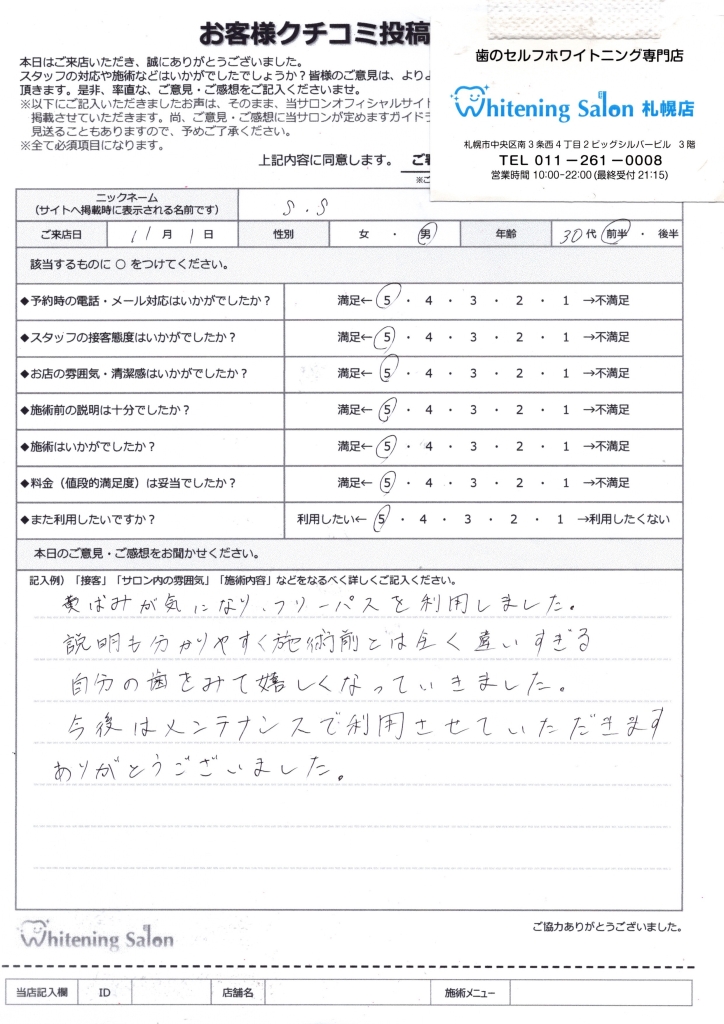 お客様クチコミ投稿
本日はご来店いただき、誠にありがとうございました。
スタッフの対応や施術などはいかがでしたでしょうか？皆様のご意見は、よりよ
頂きます。是非、率直な、ご意見・ご感想をご記入くださいませ。
※以下にご記入いただきましたお声は、そのまま、当サロンオフィシャルサイト
掲載させていただきます。尚、ご意見・ご感想に当サロンが定めますガイドラ
見送ることもありますので、予めご了承ください。
※全て必須項目になります。
上記内容に同意します。
歯のセルフホワイトニング専門店
Whitening Salon 札幌店
札幌市中央区南３条西４丁目２ビッグシルバービル ３階
TEL 011－261－0008
営業時間 10:00-22:00（最終受付 21:15）
ニックネーム
（サイトへ掲載時に表示される名前です）
S.S
ご来店日 11月1日 性別 女・男 年齢 30代 前半・後半
該当するものに ○ をつけてください。
◆予約時の電話・メール対応はいかがでしたか？ 満足← 5・4・3・2・1 →不満足
◆スタッフの接客態度はいかがでしたか？ 満足← 5・4・3・2・1 →不満足
◆お店の雰囲気・清潔感はいかがでしたか？ 満足← 5・4・3・2・1 →不満足
◆施術前の説明は十分でしたか？ 満足← 5・4・3・2・1 →不満足
◆施術はいかがでしたか？ 満足← 5・4・3・2・1 →不満足
◆料金（値段的満足度）は妥当でしたか？ 満足← 5・4・3・2・1 →不満足
◆また利用したいですか？ 利用したい← 5・4・3・2・1 →利用したくない
本日のご意見・ご感想をお聞かせください。
記入例）「接客」「サロン内の雰囲気」「施術内容」などをなるべく詳しくご記入ください。
黄ばみが気になり、フリーパスを利用しました。
説明も分かりやすく施術前とは全く違いすぎる
自分の歯をみて嬉しくなっていきました。
今後はメンテナンスで利用させていただきます
ありがとうございました。
ご協力ありがとうございました。
Whitening Salon
当店記入欄 ID 店舗名 施術メニュー